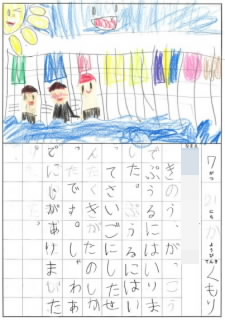 7がつ にち かようび てんき くもり
きのう、がっこう
でぷうるにはいりま
した。ぷうるにはい
ってさいごにしたせ
んたくきがたのしか
ったです。しゃわあ
どにじがあけました